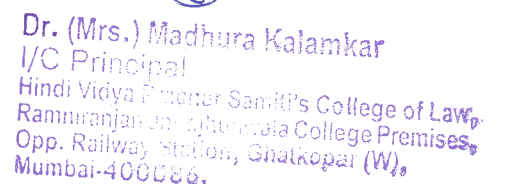 Dr. (Mrs.) Madhura Kalamkar
I/C Principal
Hindi Vidya Samiti's College of Law,
Ramniranjan College Premises,
Opp. Railway Station, Ghatkopar (W),
Mumbai-400086.